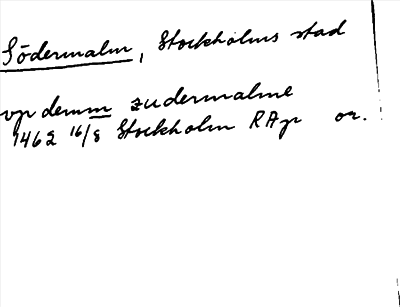 Södermalm, Stockholms stad
vp demm zudermalme
1462 16/8 Stockholm RAp or.